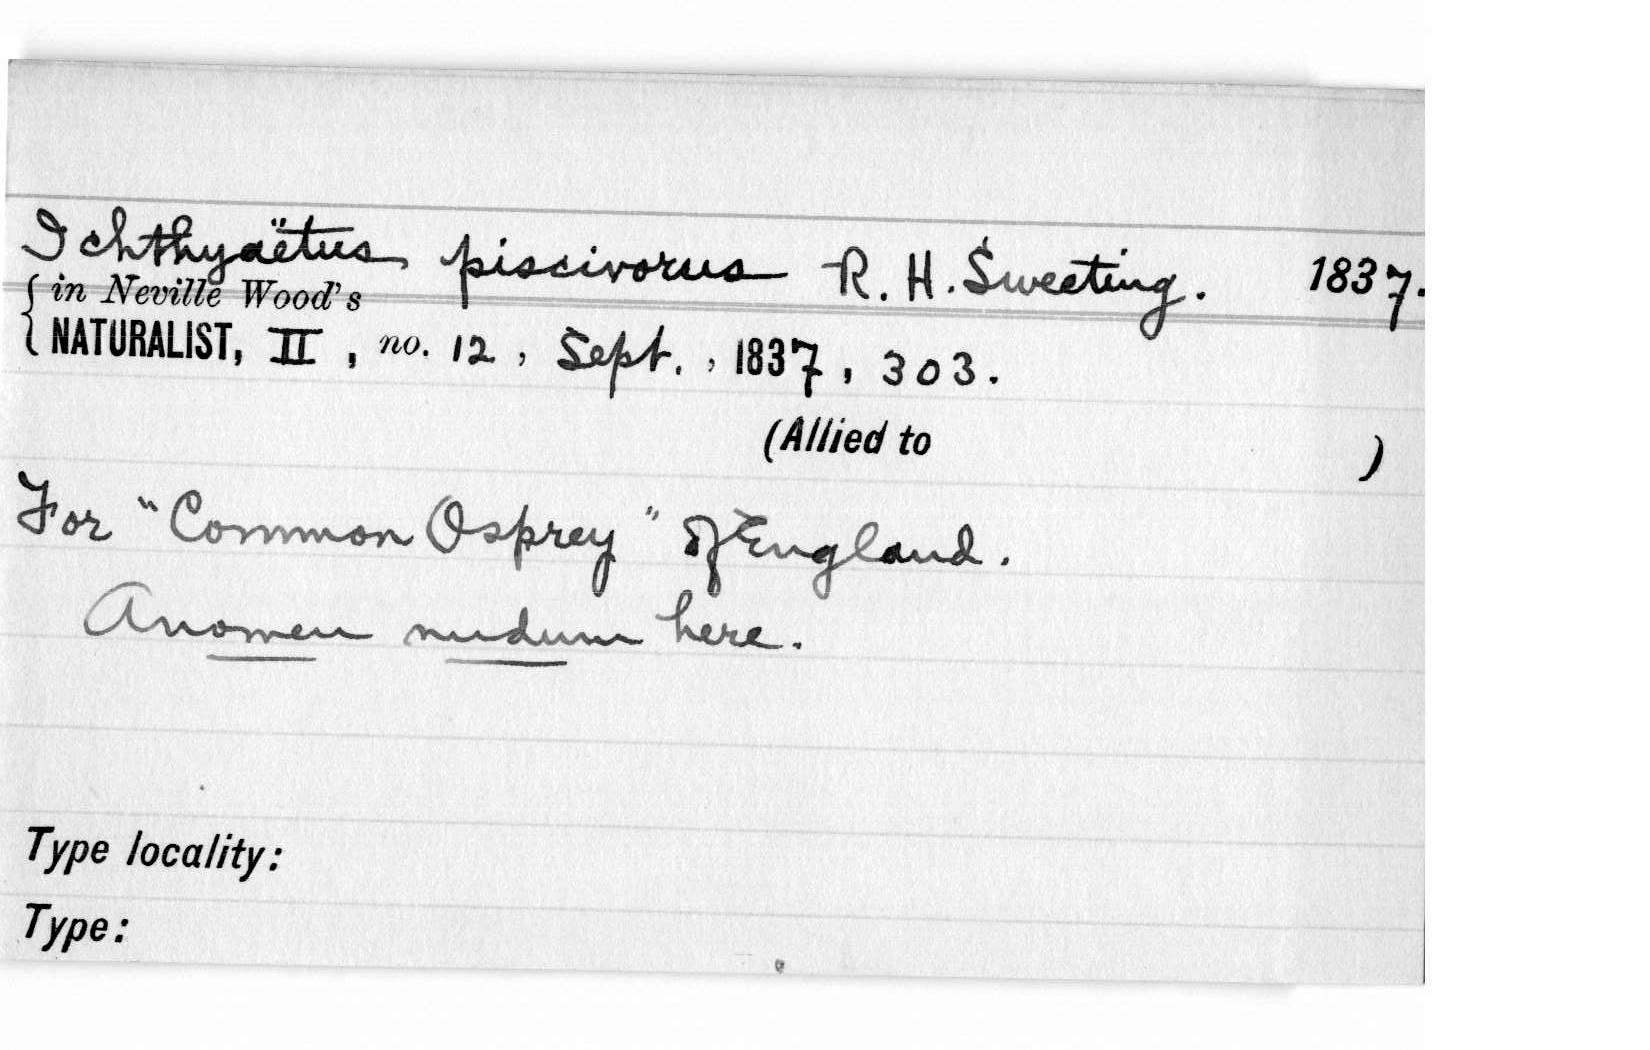 Ichthyaëtus piscivorus R. H. Sweeting. 1837.
{ in Neville Wood's
NATURALIST, II, no. 12, Sept., 1837, 303.
(Allied to )
For "Common Osprey" of England.
A nomen nudum here.
Type locality:
Type: